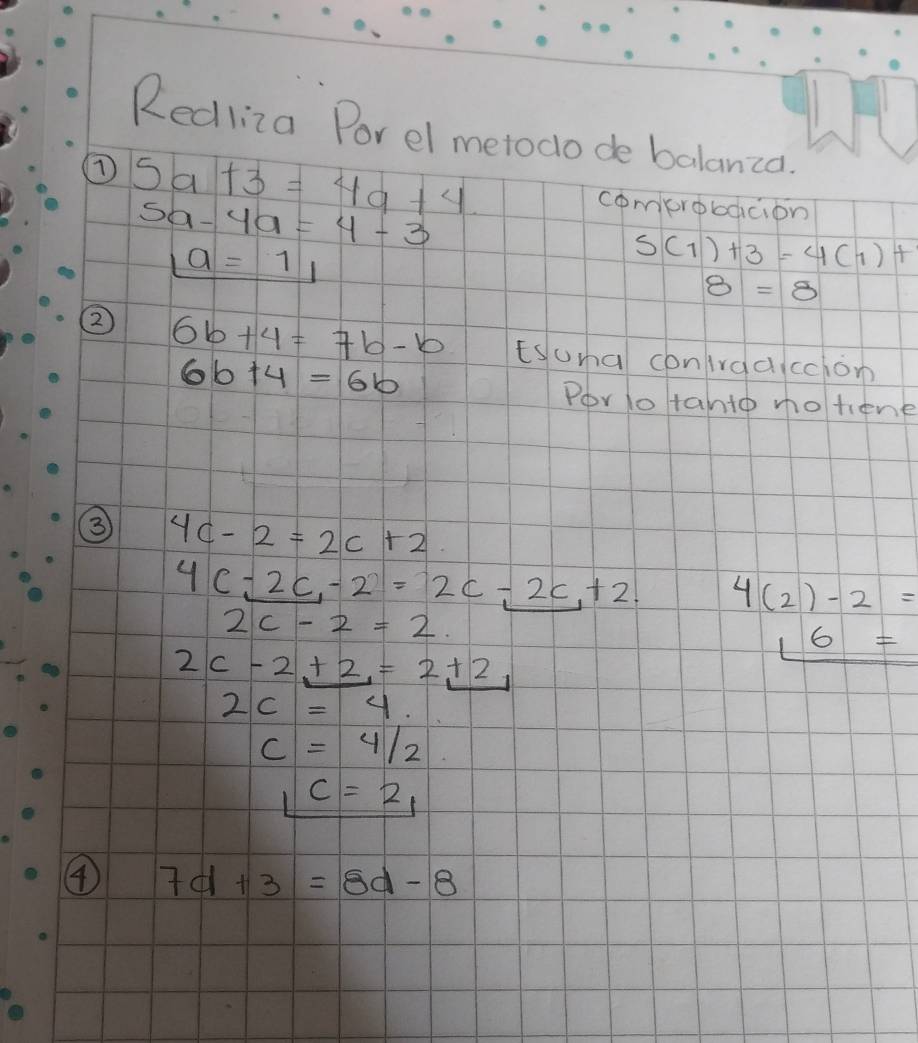 Realiza Por el metodo de balanza.
① 5a+3 = 4a+4.
5a-4a = 4-3
a = 1
comprobación
5(1)+3 = 4(1)+
8 = 8
② 6b+4 = 7b-b
6b+4 = 6b
Es una contradicción
Por lo tanto no tiene
③ 4c-2 = 2c+2.
4c-2c-2 = 2c-2c+2.
2c-2 = 2.
2c-2+2 = 2+2
2c = 4.
c = 4/2
c = 2
4(2)-2 =
6 =
④ 7d+3 = 8d-8